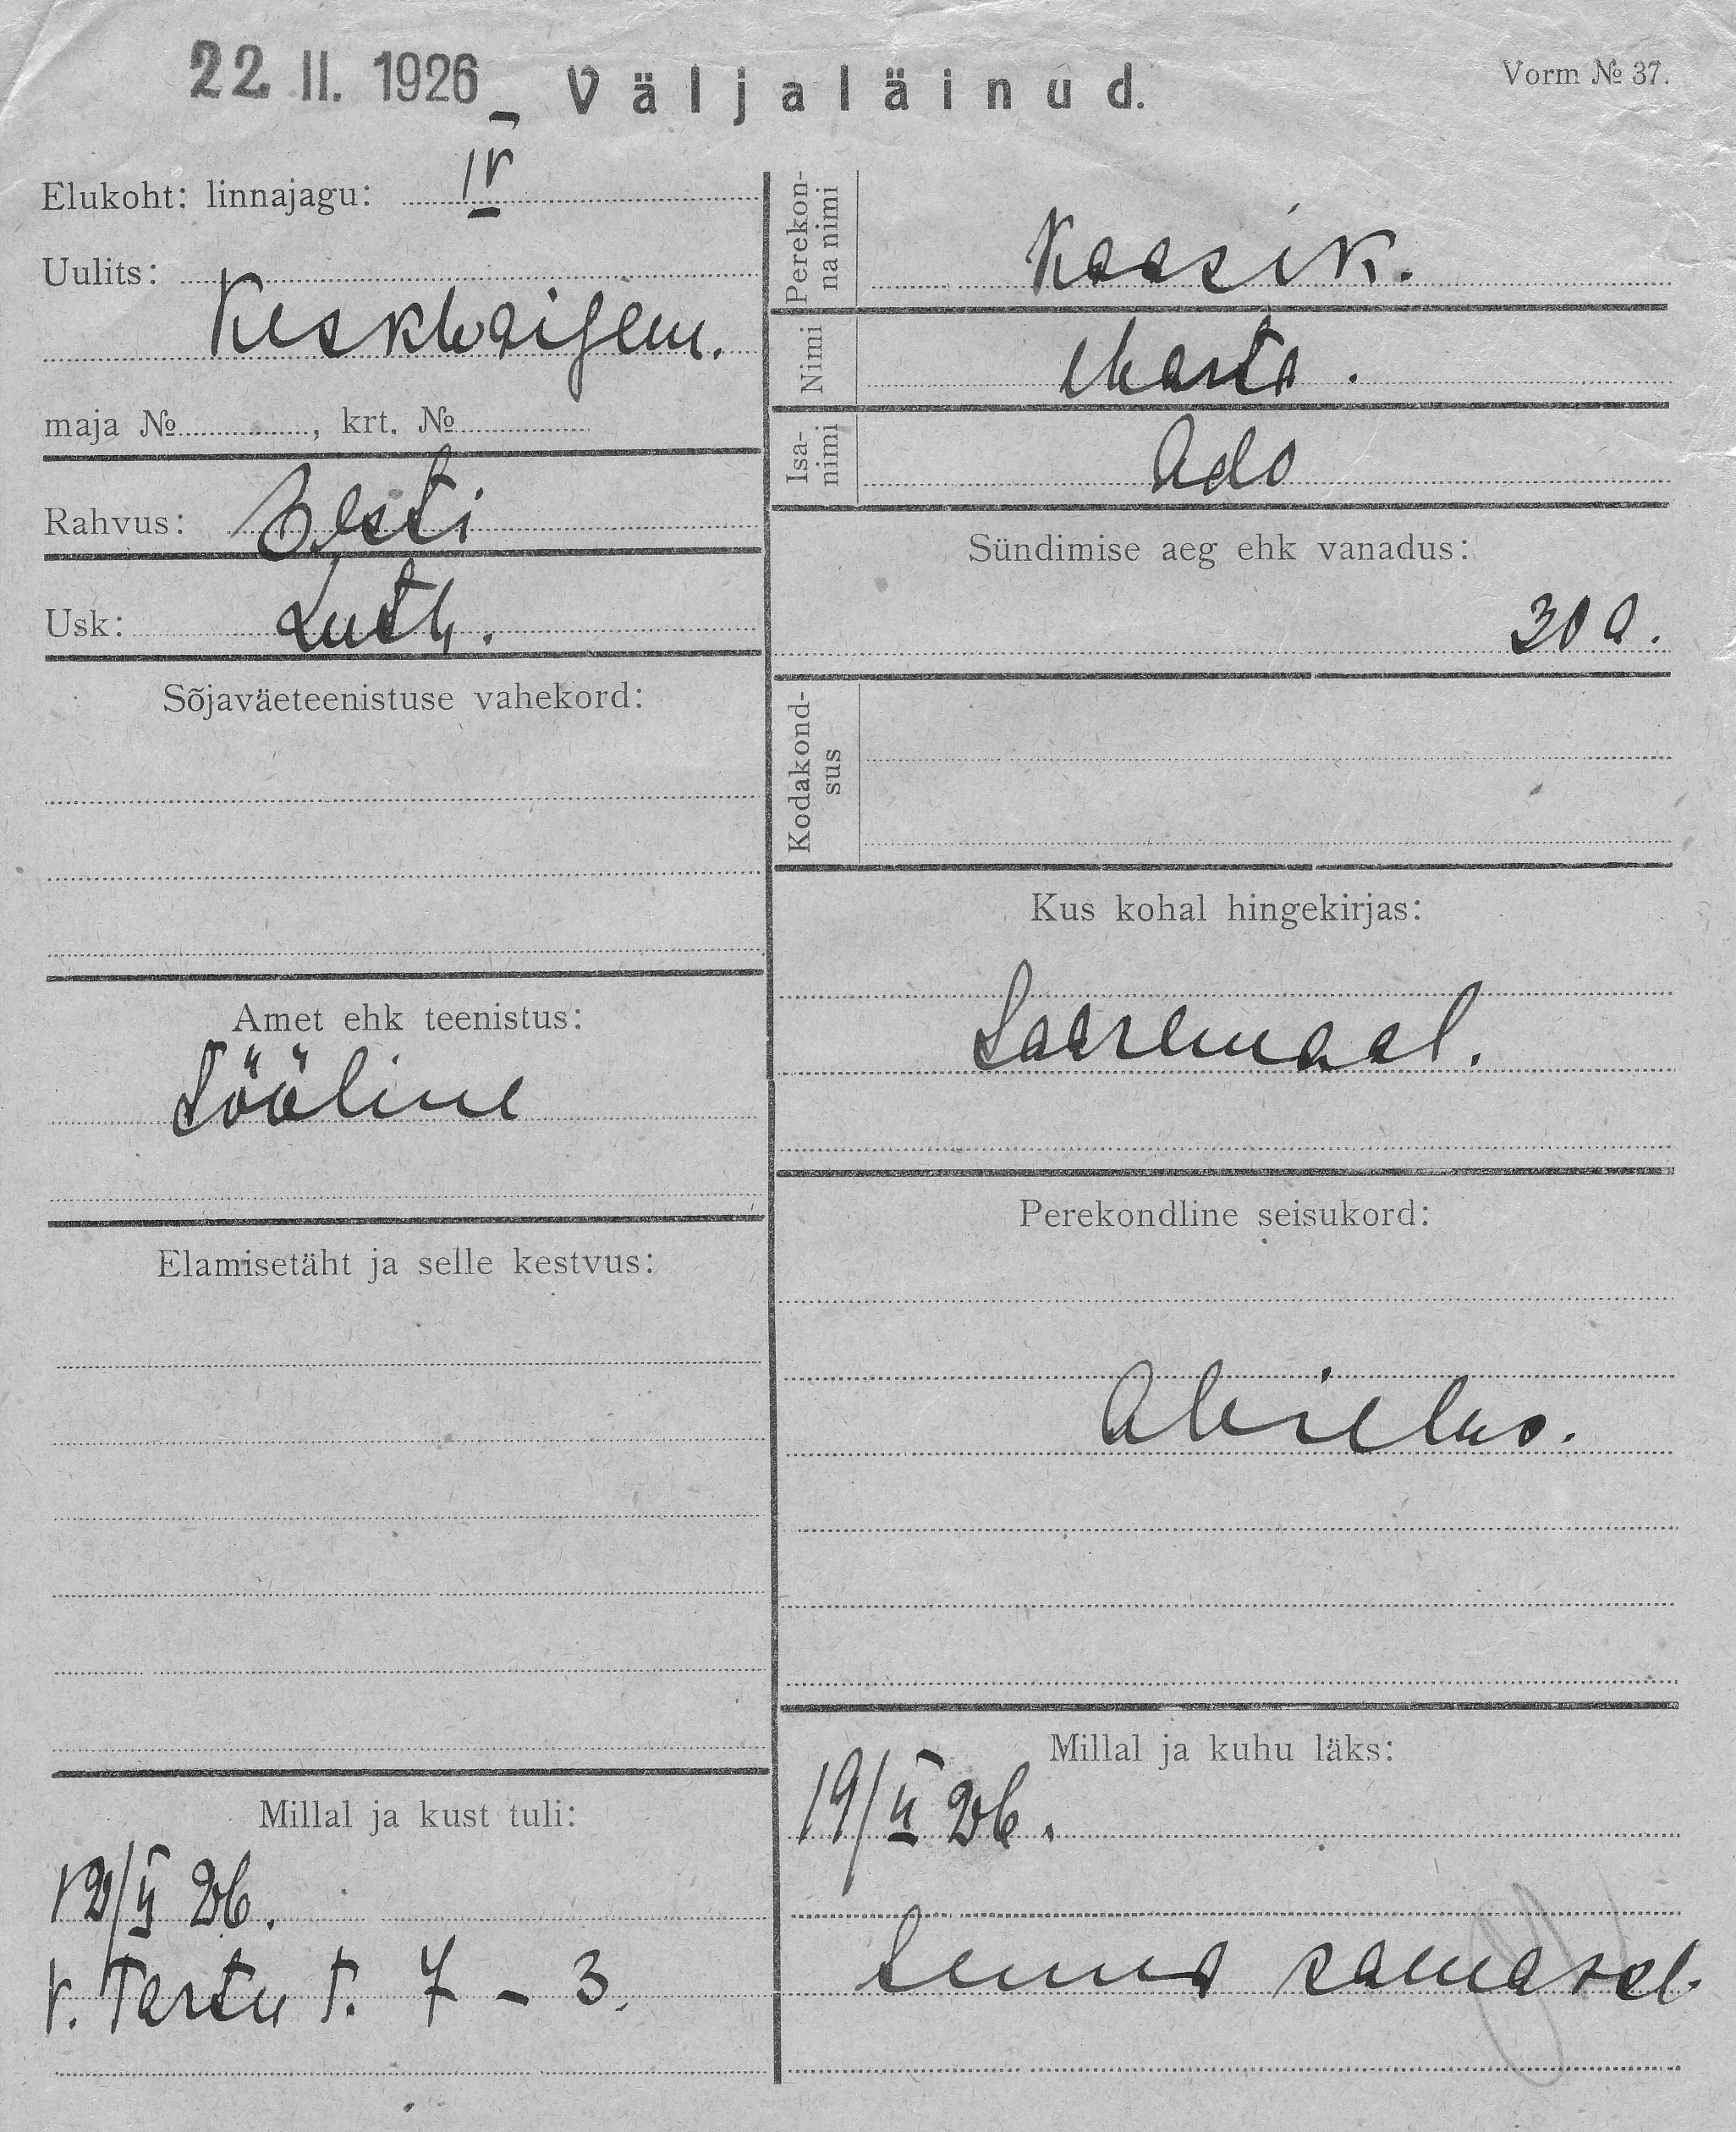 22 II. 1926
Väljaläinud.
Vorm № 37.
Elukoht: linnajagu: IV
Uulits:
Keskhaigem.
maja №, krt. №
Rahvus: Eesti
Usk: Luth.
Sõjaväeteenistuse vahekord:
Amet ehk teenistus:
Tööline
Elamisetäht ja selle kestvus:
Millal ja kust tuli:
12/II 26.
V. Tartu t. 7 – 3.
Perekon-
na nimi
Kaasik.
Nimi
Marta.
Isa-
nimi
Ado
Sündimise aeg ehk vanadus:
30 a.
Kodakond-
sus
Kus kohal hingekirjas:
Saaremaal.
Perekondline seisukord:
Abielus.
Millal ja kuhu läks:
19/II 26.
Sinna samasse